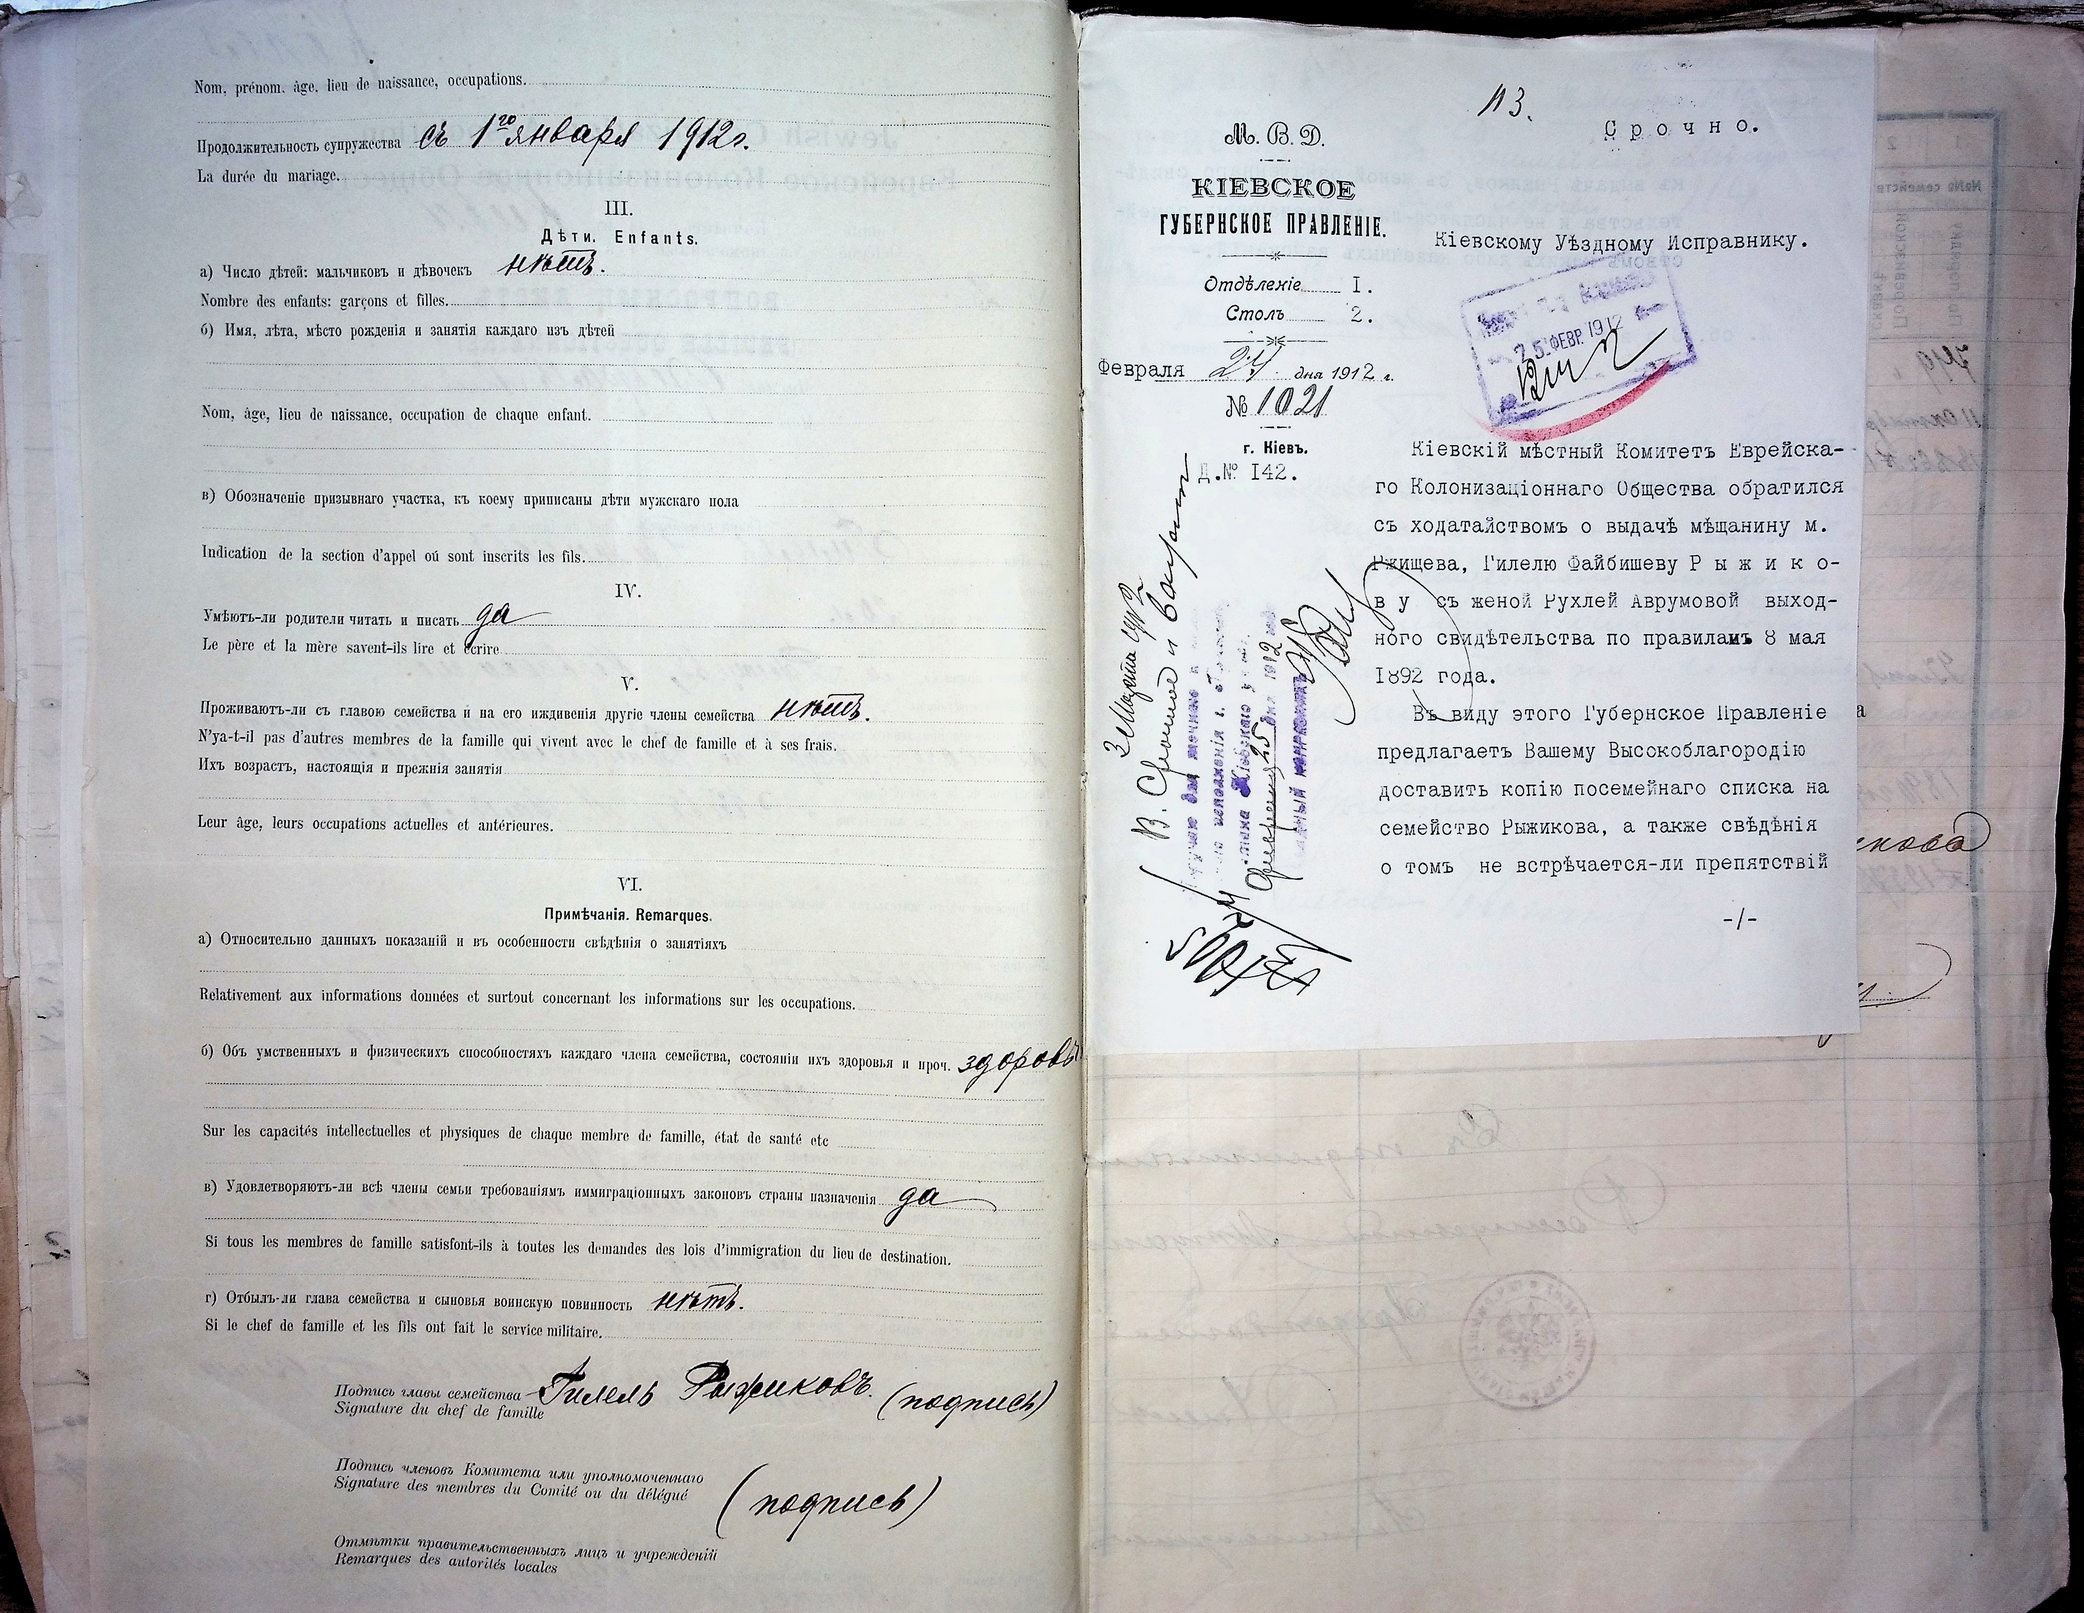 Nom, prénom, âge, lieu de naissance, occupations.
Продолжительность супружества съ 1го января 1912г.
La durée du mariage.
III.
Дѣти. Enfants.
а) Число дѣтей: мальчиковъ и дѣвочекъ нѣтъ.
Nombre des enfants: garçons et filles.
б) Имя, лѣта, мѣсто рожденія и занятія каждаго изъ дѣтей
Nom, âge, lieu de naissance, occupation de chaque enfant.
в) Обозначеніе призывнаго участка, къ коему приписаны дѣти мужскаго пола
Indication de la section d'appel oú sont inscrits les fils.
IV.
Умѣютъ-ли родители читать и писать да
Le père et la mère savent-ils lire et écrire
V.
Проживаютъ-ли съ главою семейства и на его иждивенія другіе члены семейства нѣтъ.
N'ya-t-il pas d'autres membres de la famille qui vivent avec le chef de famille et à ses frais.
Ихъ возрастъ, настоящія и прежнія занятія
Leur âge, leurs occupations actuelles et antérieures.
VI.
Примѣчанія. Remarques.
а) Относительно данныхъ показаній и въ особенности свѣдѣнія о занятіяхъ
Relativement aux informations données et surtout concernant les informations sur les occupations.
б) Объ умственныхъ и физическихъ способностяхъ каждаго члена семейства, состояніи ихъ здоровья и проч. здоровы
Sur les capacités intellectuelles et physiques de chaque membre de famille, état de santé etc
в) Удовлетворяютъ-ли всѣ члены семьи требованіямъ иммиграціонныхъ законовъ страны назначенія да
Si tous les membres de famille satisfont-ils à toutes les demandes des lois d'immigration du lieu de destination.
г) Отбылъ-ли глава семейства и сыновья воинскую повинность нѣтъ.
Si le chef de famille et les fils ont fait le service militaire.
Подпись главы семейства Гилель Рыжиковъ. (подпись)
Signature du chef de famille
Подпись членовъ Комитета или уполномоченнаго
Signature des membres du Comité ou du délégué (подпись)
Отмѣтки правительственныхъ лицъ и учрежденій
Remarques des autorités locales
113.
Срочно.
М. В. Д.
КІЕВСКОЕ
ГУБЕРНСКОЕ ПРАВЛЕНІЕ.
Отдѣленіе I.
Столъ 2.
Февраля дня 1912 г.
№ 1021
г. Кіевъ.
Д.№ 142.
Кіевскому Уѣздному Исправнику.
25 ФЕВР. 1912
Кіевскій мѣстный Комитетъ Еврейска-
го Колонизаціоннаго Общества обратился
съ ходатайствомъ о выдачѣ мѣщанину м.
Ржищева, Гилелю Файбишеву Рыжико-
ву съ женой Рухлей Аврумовой выход-
ного свидѣтельства по правиламъ 8 мая
1892 года.
Въ виду этого Губернское Правленіе
предлагаетъ Вашему Высокоблагородію
доставить копію посемейнаго списка на
семейство Рыжикова, а также свѣдѣнія
о томъ не встрѣчается-ли препятствій
-/-
3 Марта 1912
В. Срочное и
25 дня 1912